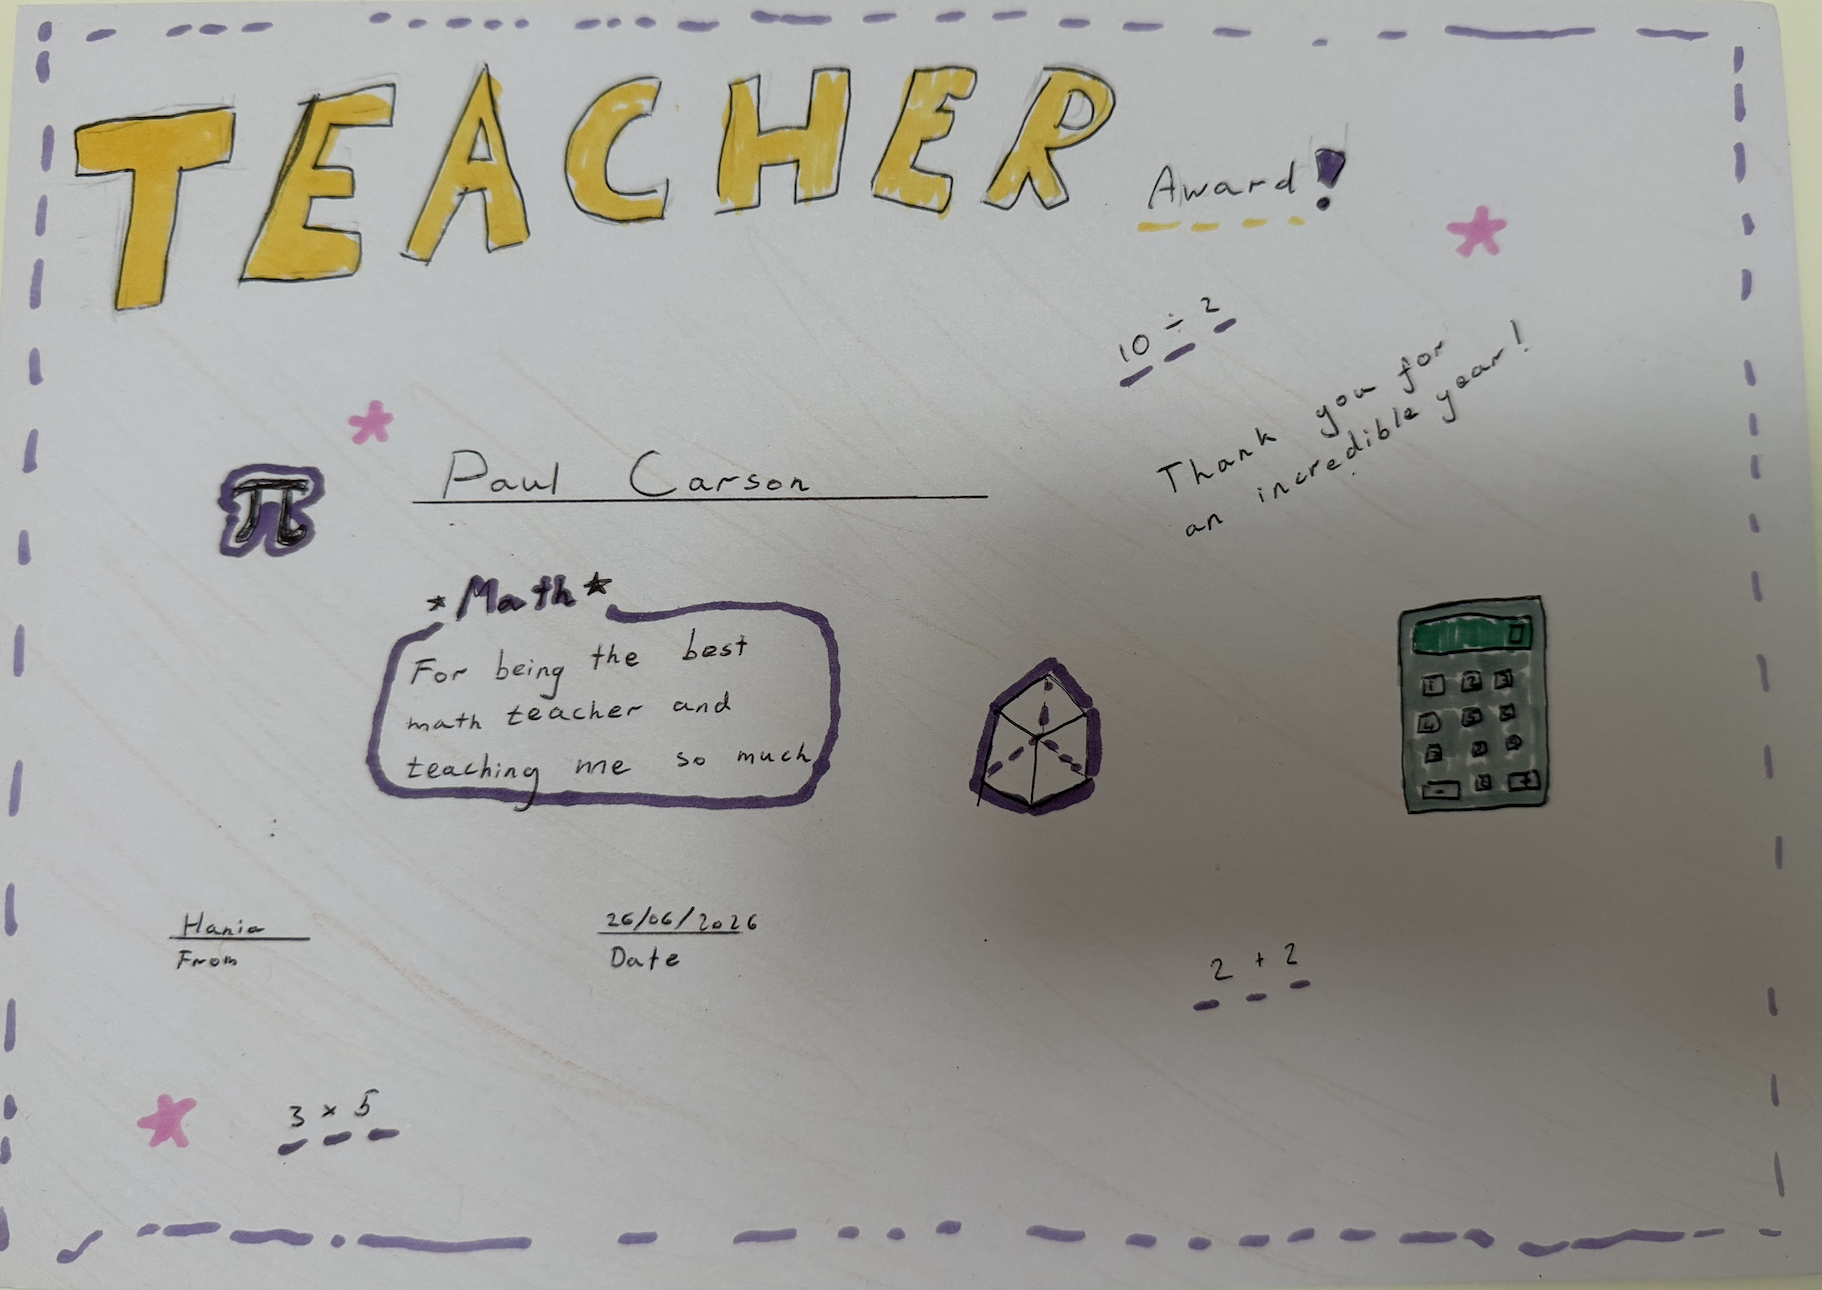 TEACHER Award!
10 ÷ 2
Thank you for
an incredible year!
π Paul Carson
*Math*
For being the best
math teacher and
teaching me so much
0
1 2 3
4 5 6
7 8 9
- 0 +
Hania
From
26/06/2026
Date
2 + 2
3 × 5